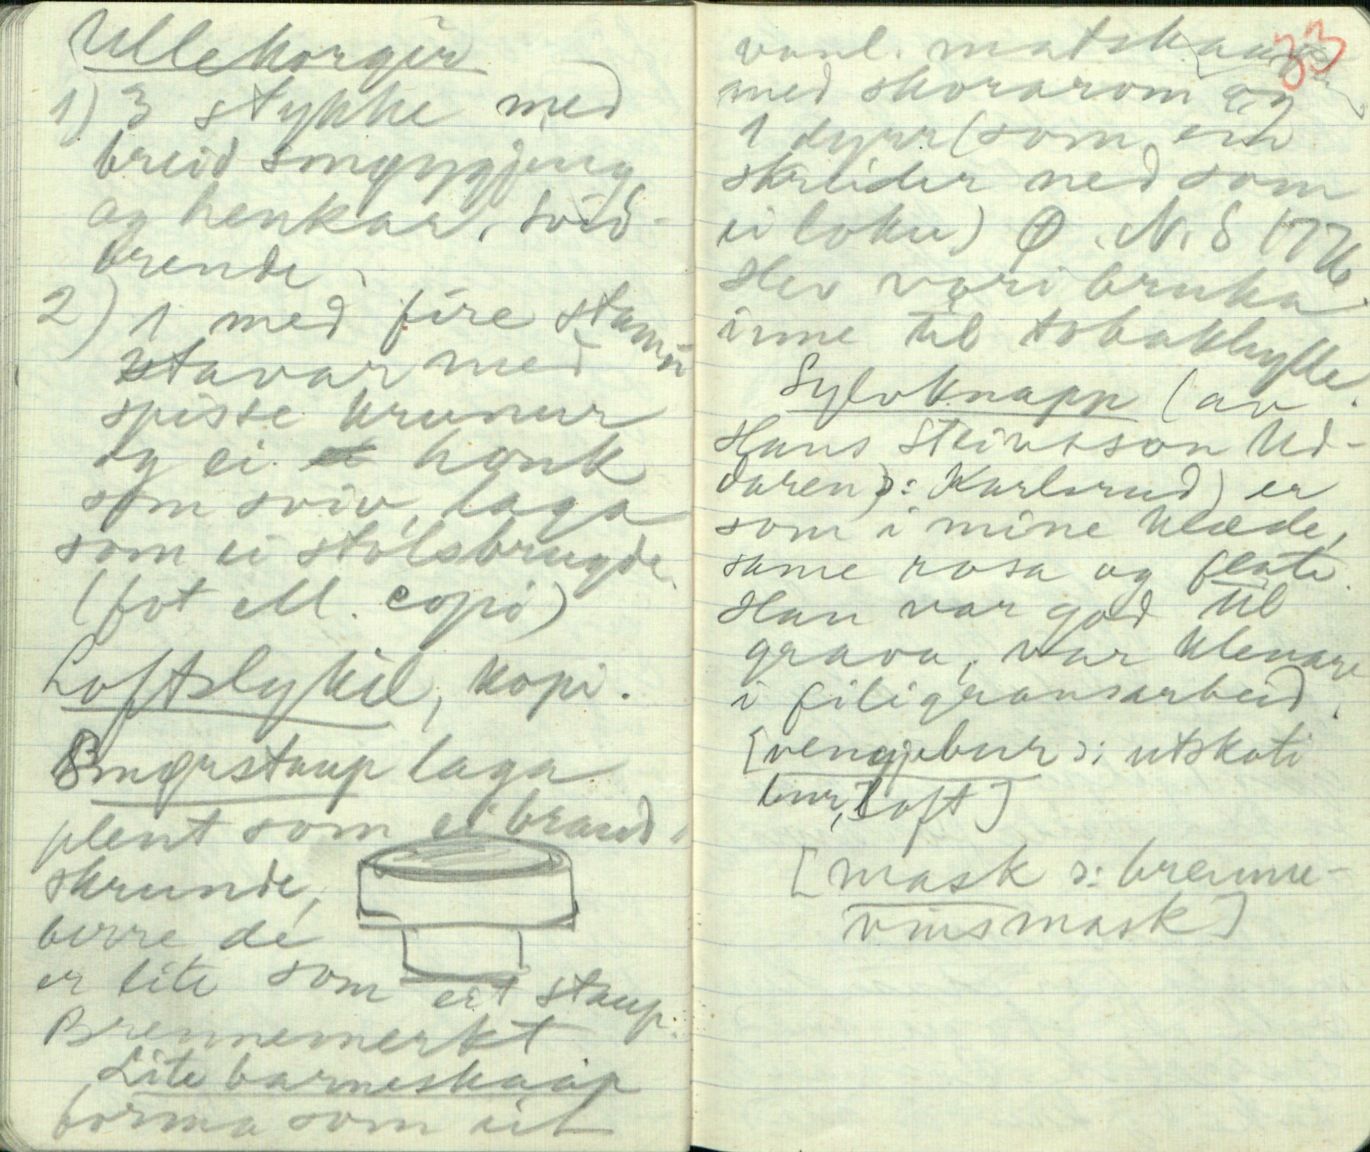 Ullekorgir
1) 3 stykke med
breid smøygjing
og henkar, svid-
brende.
2) 1 med fire stamm
stavar med
spisse krunur
og ei honk
som sviv, laga
som ei stølsbrugde.
(fot M. copi)
Loftslykil, kopi.
Smørstaup laga
plent som ei braud-
skrunde,
berre de
er lite som eit staup.
Brennemerkt
Lite barneskaap
forma som eit
33
vanl. matskaap
med skorarom og
1 dyrr (som ein
skrider ned som
ei loku) Ø. N. S 1776
Hev vori bruka
inne til tobakkhylle.
Sylvknapp (av
Hans Steinsson Ud-
daren ɔ: Karlsrud) er
som i mine klæde,
same rosa og flate.
Han var god til
grava, var klenare
i filigransarbeid.
[vengjebur ɔ: utskoti
bur, loft]
[mask ɔ: brenne-
vinsmask]